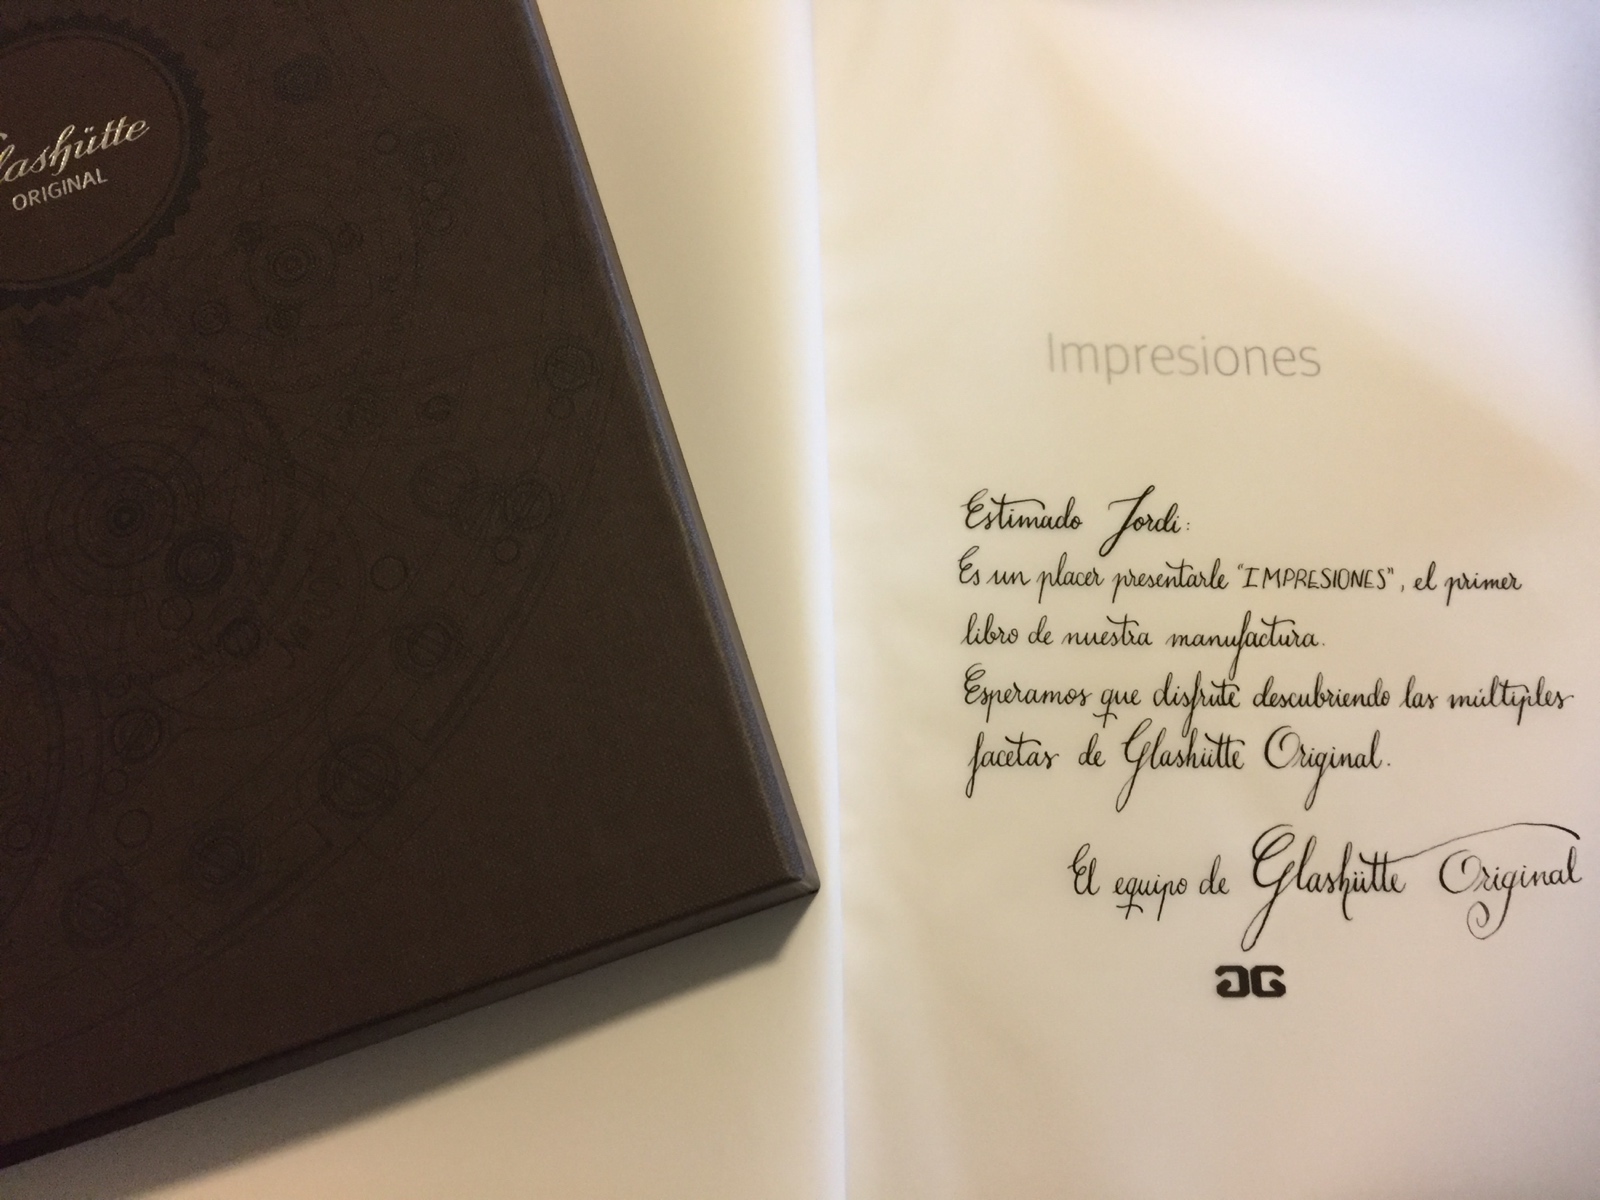 Glashütte
ORIGINAL
Impresiones
Estimado Jordi:
Es un placer presentarle "IMPRESIONES", el primer
libro de nuestra manufactura.
Esperamos que disfrute descubriendo las múltiples
facetas de Glashütte Original.
El equipo de Glashütte Original
GG